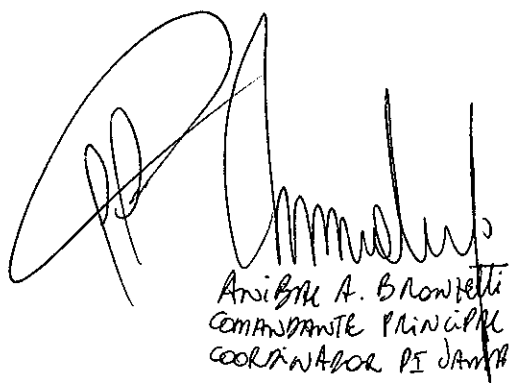 ANIBAL A. BRONZETTI
COMANDANTE PRINCIPAL
COORDINADOR PI JAMA